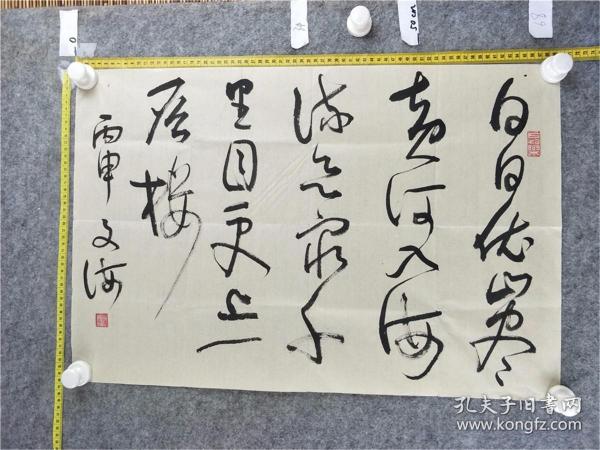 白日依山尽
黄河入海
流欲穷千
里目更上一
层楼
丙申 文海
孔夫子旧书网
www.kongfz.com